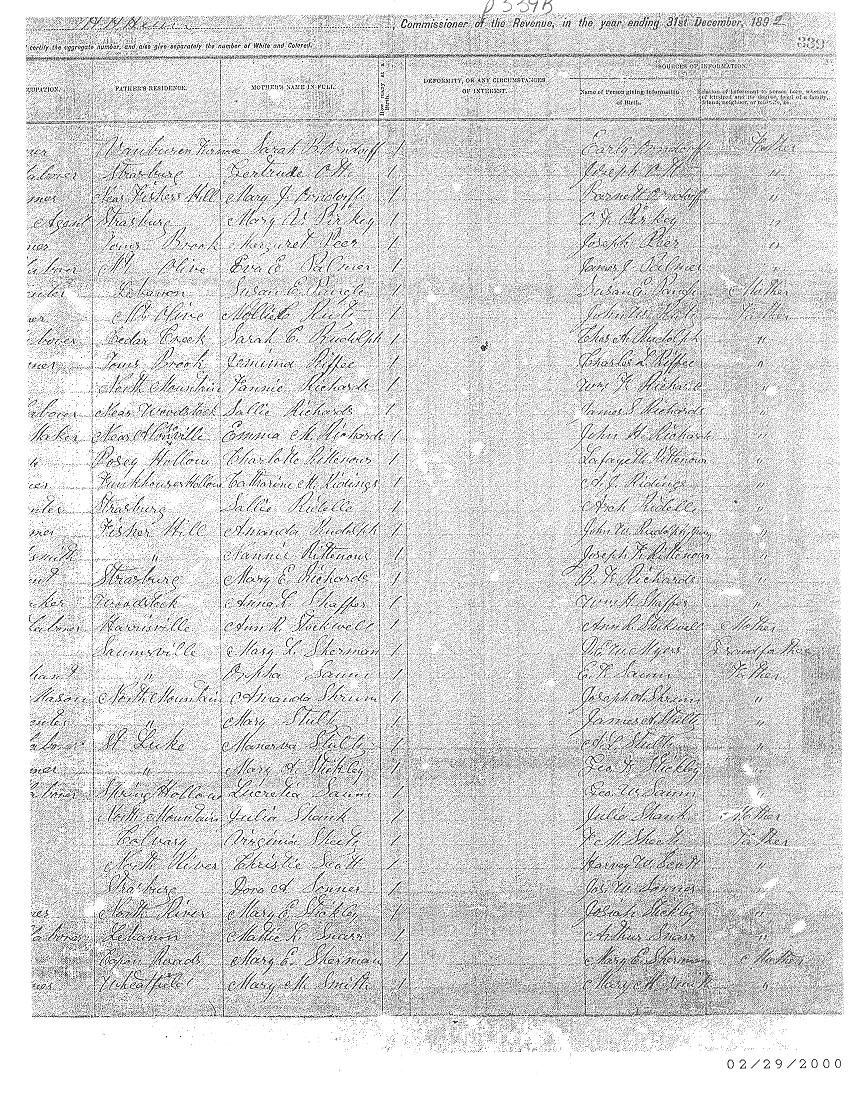 P 339B
Commissioner of the Revenue, in the year ending 31st December, 189
339
certify the aggregate number, and also give separately the number of White and Colored.
SOURCES OF INFORMATION.
UPATION. FATHER'S RESIDENCE. MOTHER'S NAME IN FULL. How many at a Birth. DEFORMITY, OR ANY CIRCUMSTANCES OF INTEREST. Name of Person giving Information of Birth. Relation of informant to person born, whether
mer Vanburen Furnace Sarah R. Orndorff 1 Early Orndorff Father
laborer Strasburg Gertrude Ott 1 Joseph Ott "
mer Near Fishers Hill Mary J. Orndorff 1 Barnett Orndorff "
Agent Strasburg Mary V. Pirkey 1 Pirkey "
mer Toms Brook Margaret Peer 1 Joseph Peer "
laborer Mt Olive Eva E. Palmer 1 James J. Palmer "
Lebanon Susan E. 1 Susan E. Mother
er Mt Olive 1 Father
laborer Cedar Creek Sarah C. Rudolph 1 Chas A. Rudolph "
mer Toms Brook Jemima Riffee 1 Charles L. Riffee "
North Mountain Fannie Richards 1 Wm F. Richard "
laborer Near Woodstock Sallie Richards 1 James S. Richards "
Maker Near Emma M. Richards 1 John H. Richards "
Posey Hollow Charlotte Rittenour 1 Lafayette Rittenour "
mer Funkhouser Hollow Catharine M. Ridings 1 A. J. Ridings "
nter Strasburg Sallie Ridelle 1 Arch Ridelle "
mer Fisher Hill Amanda Rudolph 1 John W. Rudolph "
smith " Nannie Rittenour 1 Joseph F. Rittenour "
Strasburg Mary E. Richards 1 B. F. Richards "
ker Woodstock Anna L. Shaffer 1 Wm H. Shaffer "
Laborer Harrisville Ann R. Stockwell 1 Ann R. Stockwell Mother
Saumsville Mary L. Sherman 1 Myers Grandfather
hant " Orpha Saum 1 E. F. Saum Father
Mason North Mountain Amanda Shrum 1 Joseph A. Shrum "
" Mary Stultz 1 James A. Stultz "
laborer St Luke Manerva Stultz 1 A. L. Stultz "
mer " Mary A. Stickley 1 Geo H. Stickley "
laborer Spring Hollow Lucretia Saum 1 Geo W. Saum "
North Mountain Julia Shank 1 Julia Shank Mother
Calvary Virginia Sheetz 1 Sheetz Father
North River Christie Scott 1 Harvey W. Scott "
Strasburg Dora A. Sonner 1 Jas. W. Sonner "
mer North River Mary E. Stickley 1 Josiah Stickley "
laborer Lebanon Mattie L. Snarr 1 Arthur Snarr "
Capon Roads Mary C. Sherman 1 Mary C. Sherman Mother
mer Wheatfield Mary M. Smith 1 Mary M. Smith "
02/29/2000